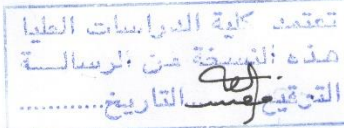 تعتمد كلية الدراسات العليا
هذه النسخة من الرسالــة
التوقيع التاريخ............